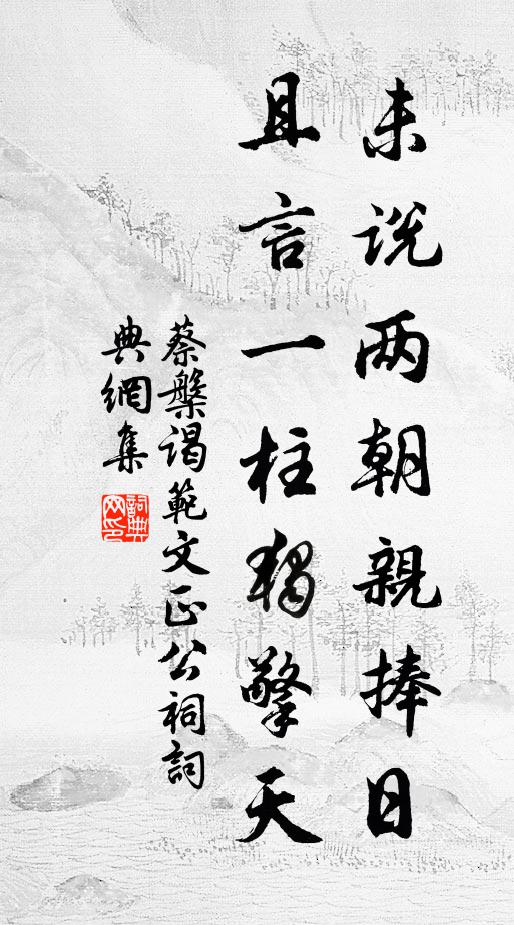 未说两朝親捧日
且言一柱獨擎天
蔡槃谒範文正公祠詞
典網集
詞典
网印